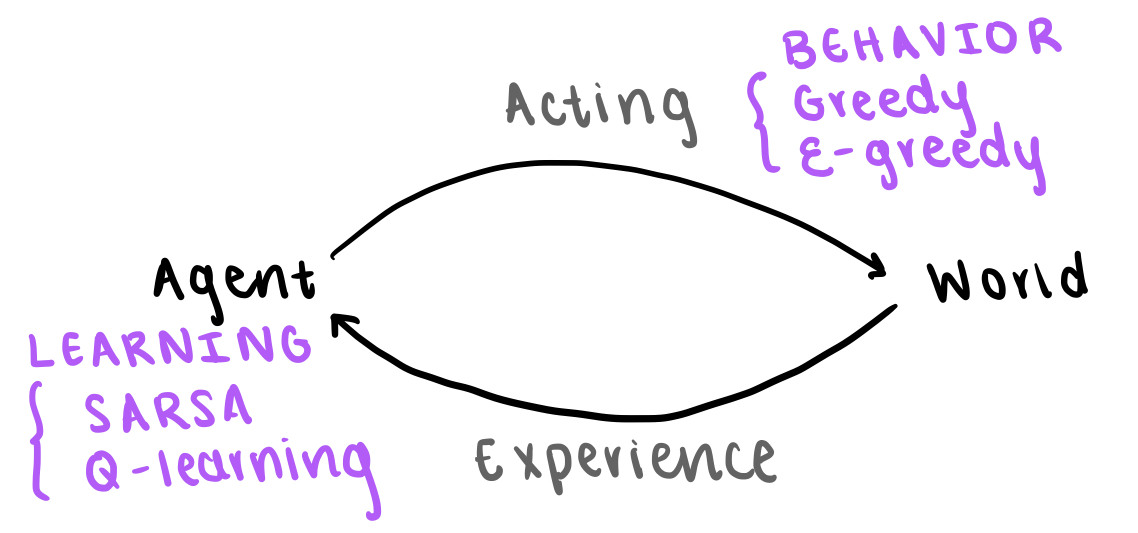 BEHAVIOR
Acting
Greedy
ε-greedy
Agent
World
LEARNING
SARSA
Q-learning
Experience